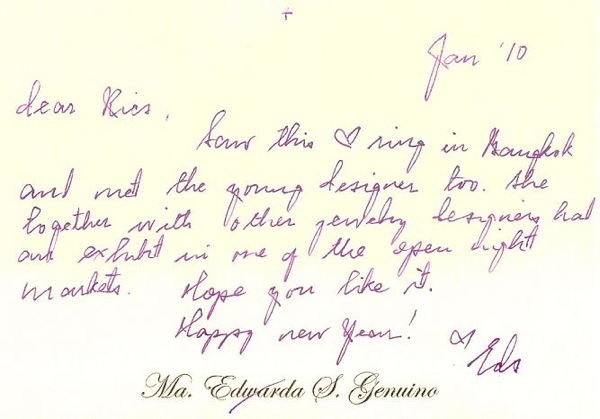 Jan '10
Dear Rics,
Saw this ♡ ring in Bangkok
and met the young designer too. She
together with other jewelry designers had
an exhibit in one of the open night
markets. Hope you like it.
Happy new Year!
Eds
Ma. Edwarda S. Genuino